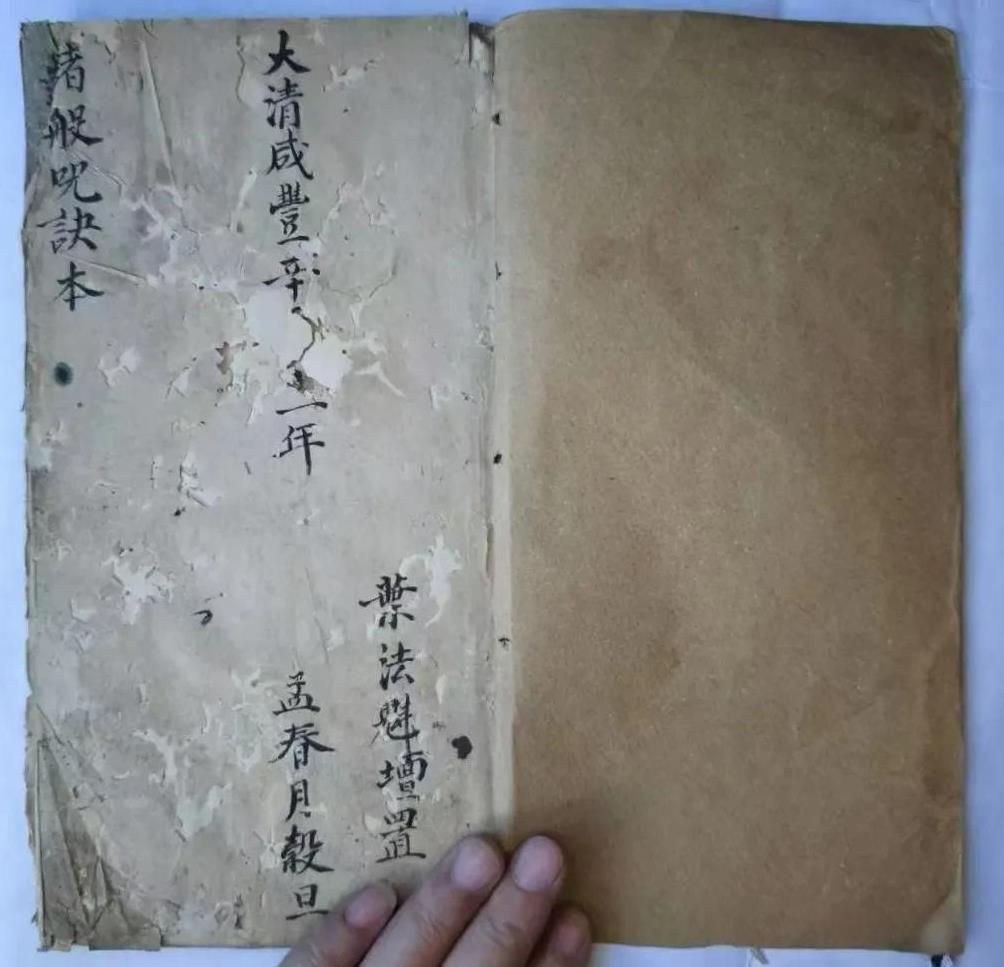 葉法魁壇置
大清咸豐辛一年
孟春月穀旦
諸般咒訣本